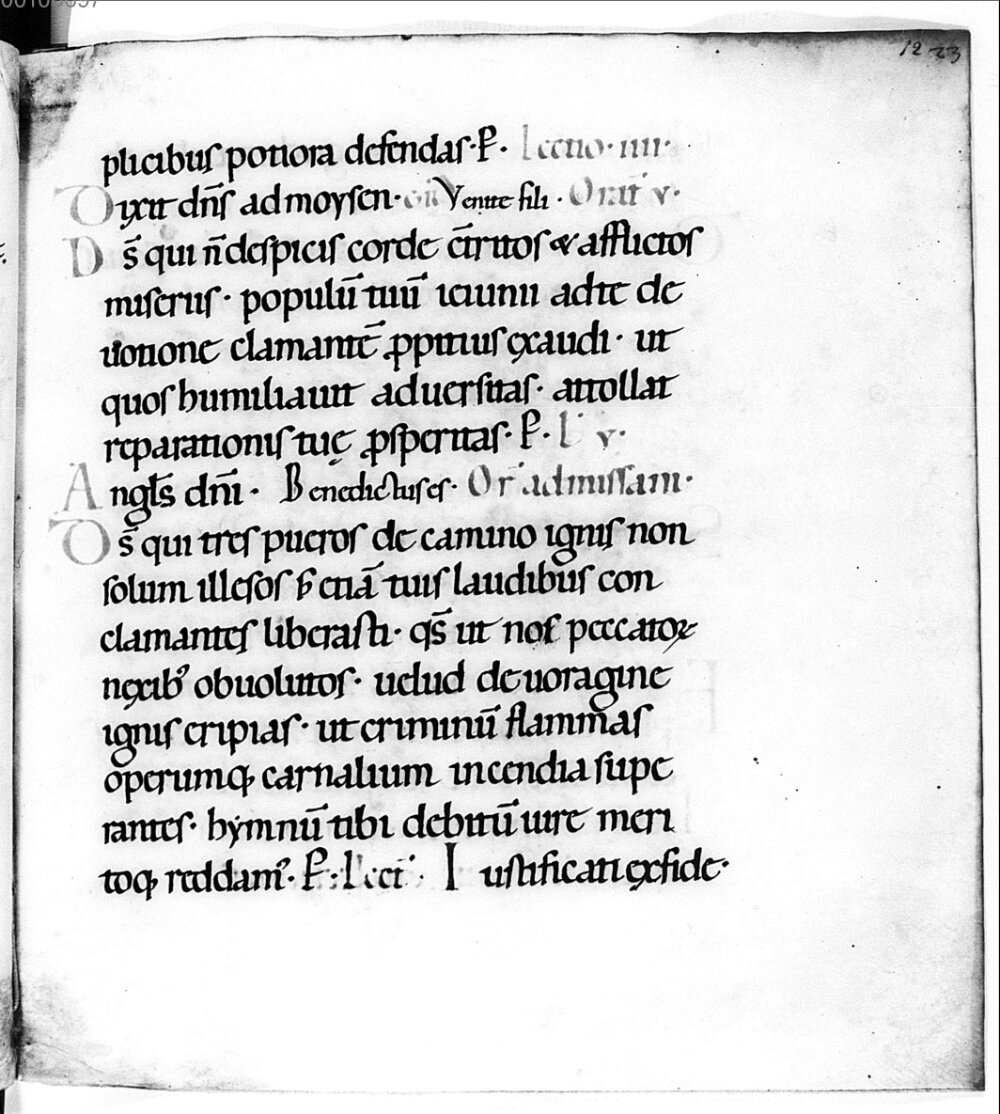 0010-897
12 33
plicibus potiora defendas· P̷· Lectio· iiii·
Dixit dn̄s ad moysen· Venite fili· Oratˉ v·
Ds̄ qui n̄ despicis corde c̄tritos & afflictos
miseriis· populū tuū ieiunii ad te de
uotione clamantē ꝓpitius exaudi· ut
quos humiliauit aduersitas· attollat
reparationis tuę ꝓsperitas· P̷· L v·
Angls̄ dn̄i· Benedictus es· Or̄ ad missam·
Ds̄ qui tres pueros de camino ignis non
solum illesos s; etiā tuis laudibus con
clamantes liberasti· qs̄ ut nos peccatoꝝ
nexibꝰ obuolutos· uelud de uoragine
ignis eripias· ut criminū flammas
operumq; carnalium incendia supe
rantes· hymnū tibi debitū iure meri
toq; reddamꝰ· P̷· Lecī· Iustificati ex fide·